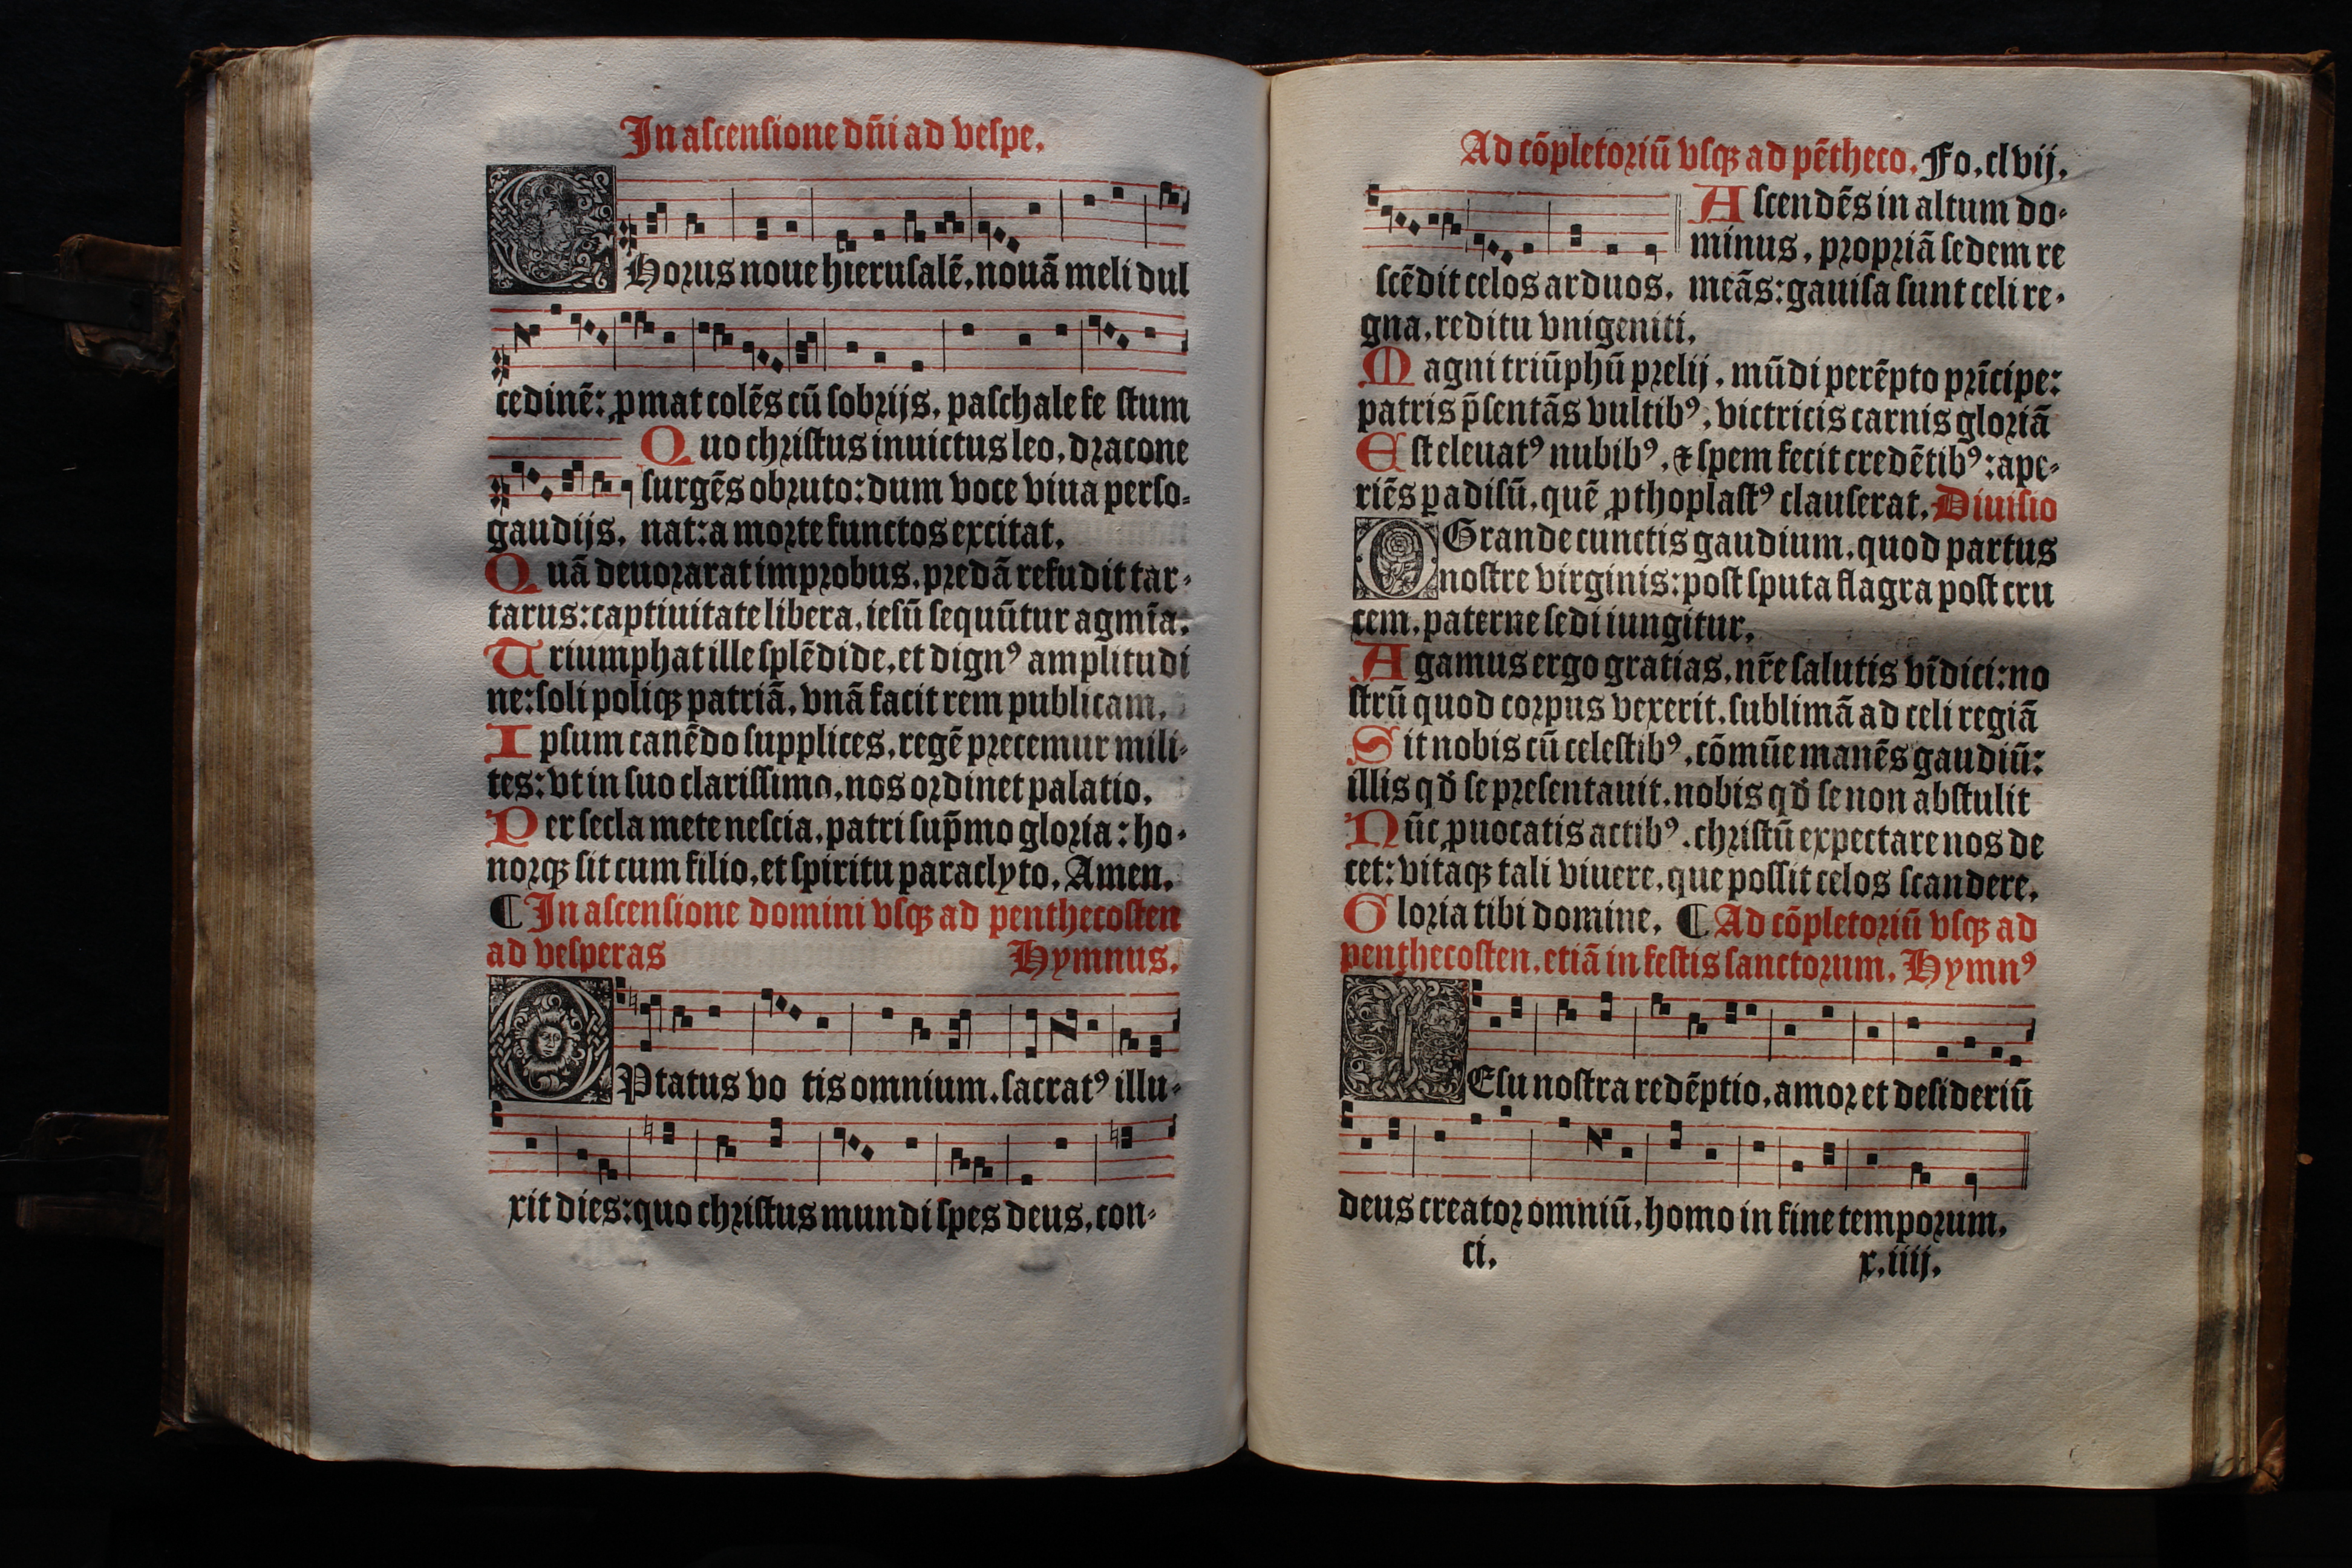 In ascensione dñi ad vespe.
CHorus noue hierusalē. nouā meli dul
cedinē: ꝓmat colēs cū sobrijs. paschale fe stum
Quo christus inuictus leo. dracone
surgēs obruto: dum voce viua perso-
gaudijs. nat: a morte functos excitat.
Quā deuorarat improbus. predā refudit tar-
tarus: captiuitate libera. iesū sequūtur agmīa.
Triumphat ille splēdide. et dignꝰ amplitudi
ne: soli poliqꝫ patriā. vnā facit rem publicam.
Ipsum canēdo supplices. regē precemur mili-
tes: vt in suo clarissimo. nos ordinet palatio.
Per secla mete nescia. patri sup̄mo gloria: ho-
norqꝫ sit cum filio. et spiritu paraclyto. Amen.
¶ In ascensione domini vsqꝫ ad penthecosten
ad vesperas Hymnus.
OPtatus vo tis omnium. sacratꝰ illu-
xit dies: quo christus mundi spes deus. con-
Ad cōpletoriū vsqꝫ ad pētheco. Fo. clvij.
Ascendēs in altum do-
minus. propriā sedem re
scēdit celos arduos. meās: gauisa sunt celi re-
gna. reditu vnigeniti.
Magni triūphū prelij. mūdi perēpto prīcipe:
patris p̄sentās vultibꝰ. victricis carnis gloriā
Est eleuatꝰ nubibꝰ. ⁊ spem fecit credētibꝰ: ape-
riēs ꝑadisū. quē ꝓthoplastꝰ clauserat. Diuisio
O Grande cunctis gaudium. quod partus
nostre virginis: post sputa flagra post cru
cem. paterne sedi iungitur.
Agamus ergo gratias. nr̄e salutis vīdici: no
strū quod corpus vexerit. sublimā ad celi regiā
Sit nobis cū celestibꝰ. cōmūe manēs gaudiū:
illis qđ se presentauit. nobis qđ se non abstulit
Nūc ꝓuocatis actibꝰ. christū expectare nos de
cet: vitaqꝫ tali viuere. que possit celos scandere.
Gloria tibi domine. ¶ Ad cōpletoriū vsqꝫ ad
penthecosten. etiā in festis sanctorum. Hymnꝰ
IEsu nostra redēptio. amor et desideriū
deus creator omniū. homo in fine temporum.
ci. x. iiij.